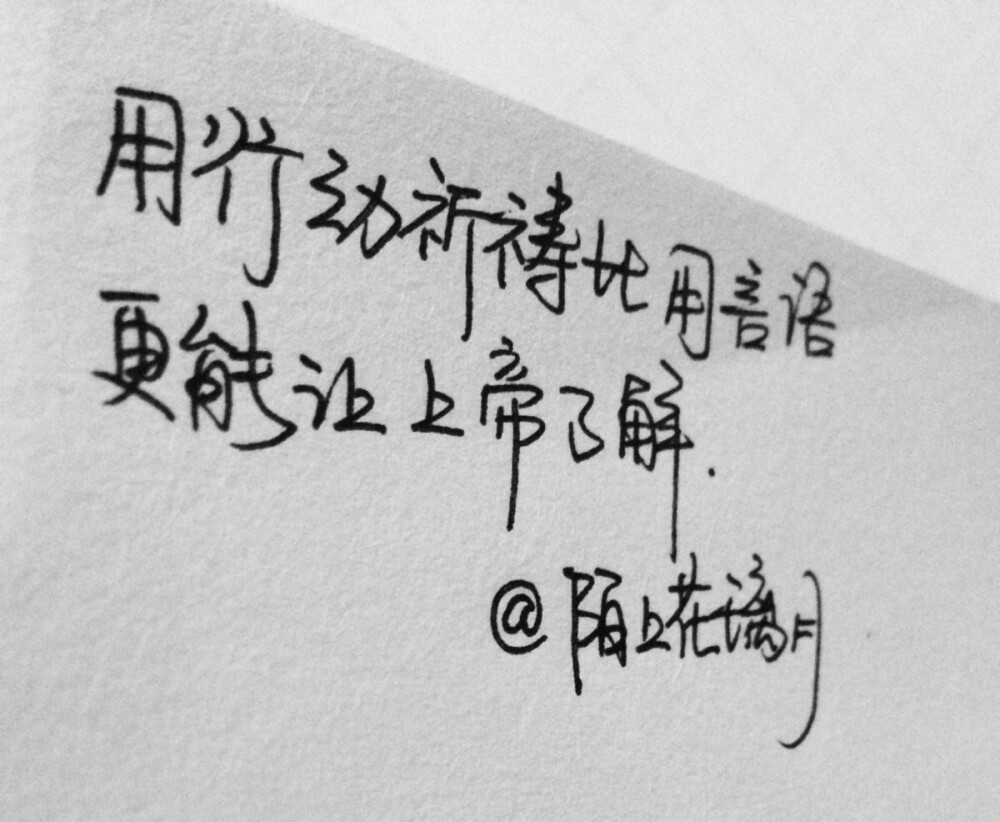 用行动祈祷比用言语
更能让上帝了解.
@陌上花漓月